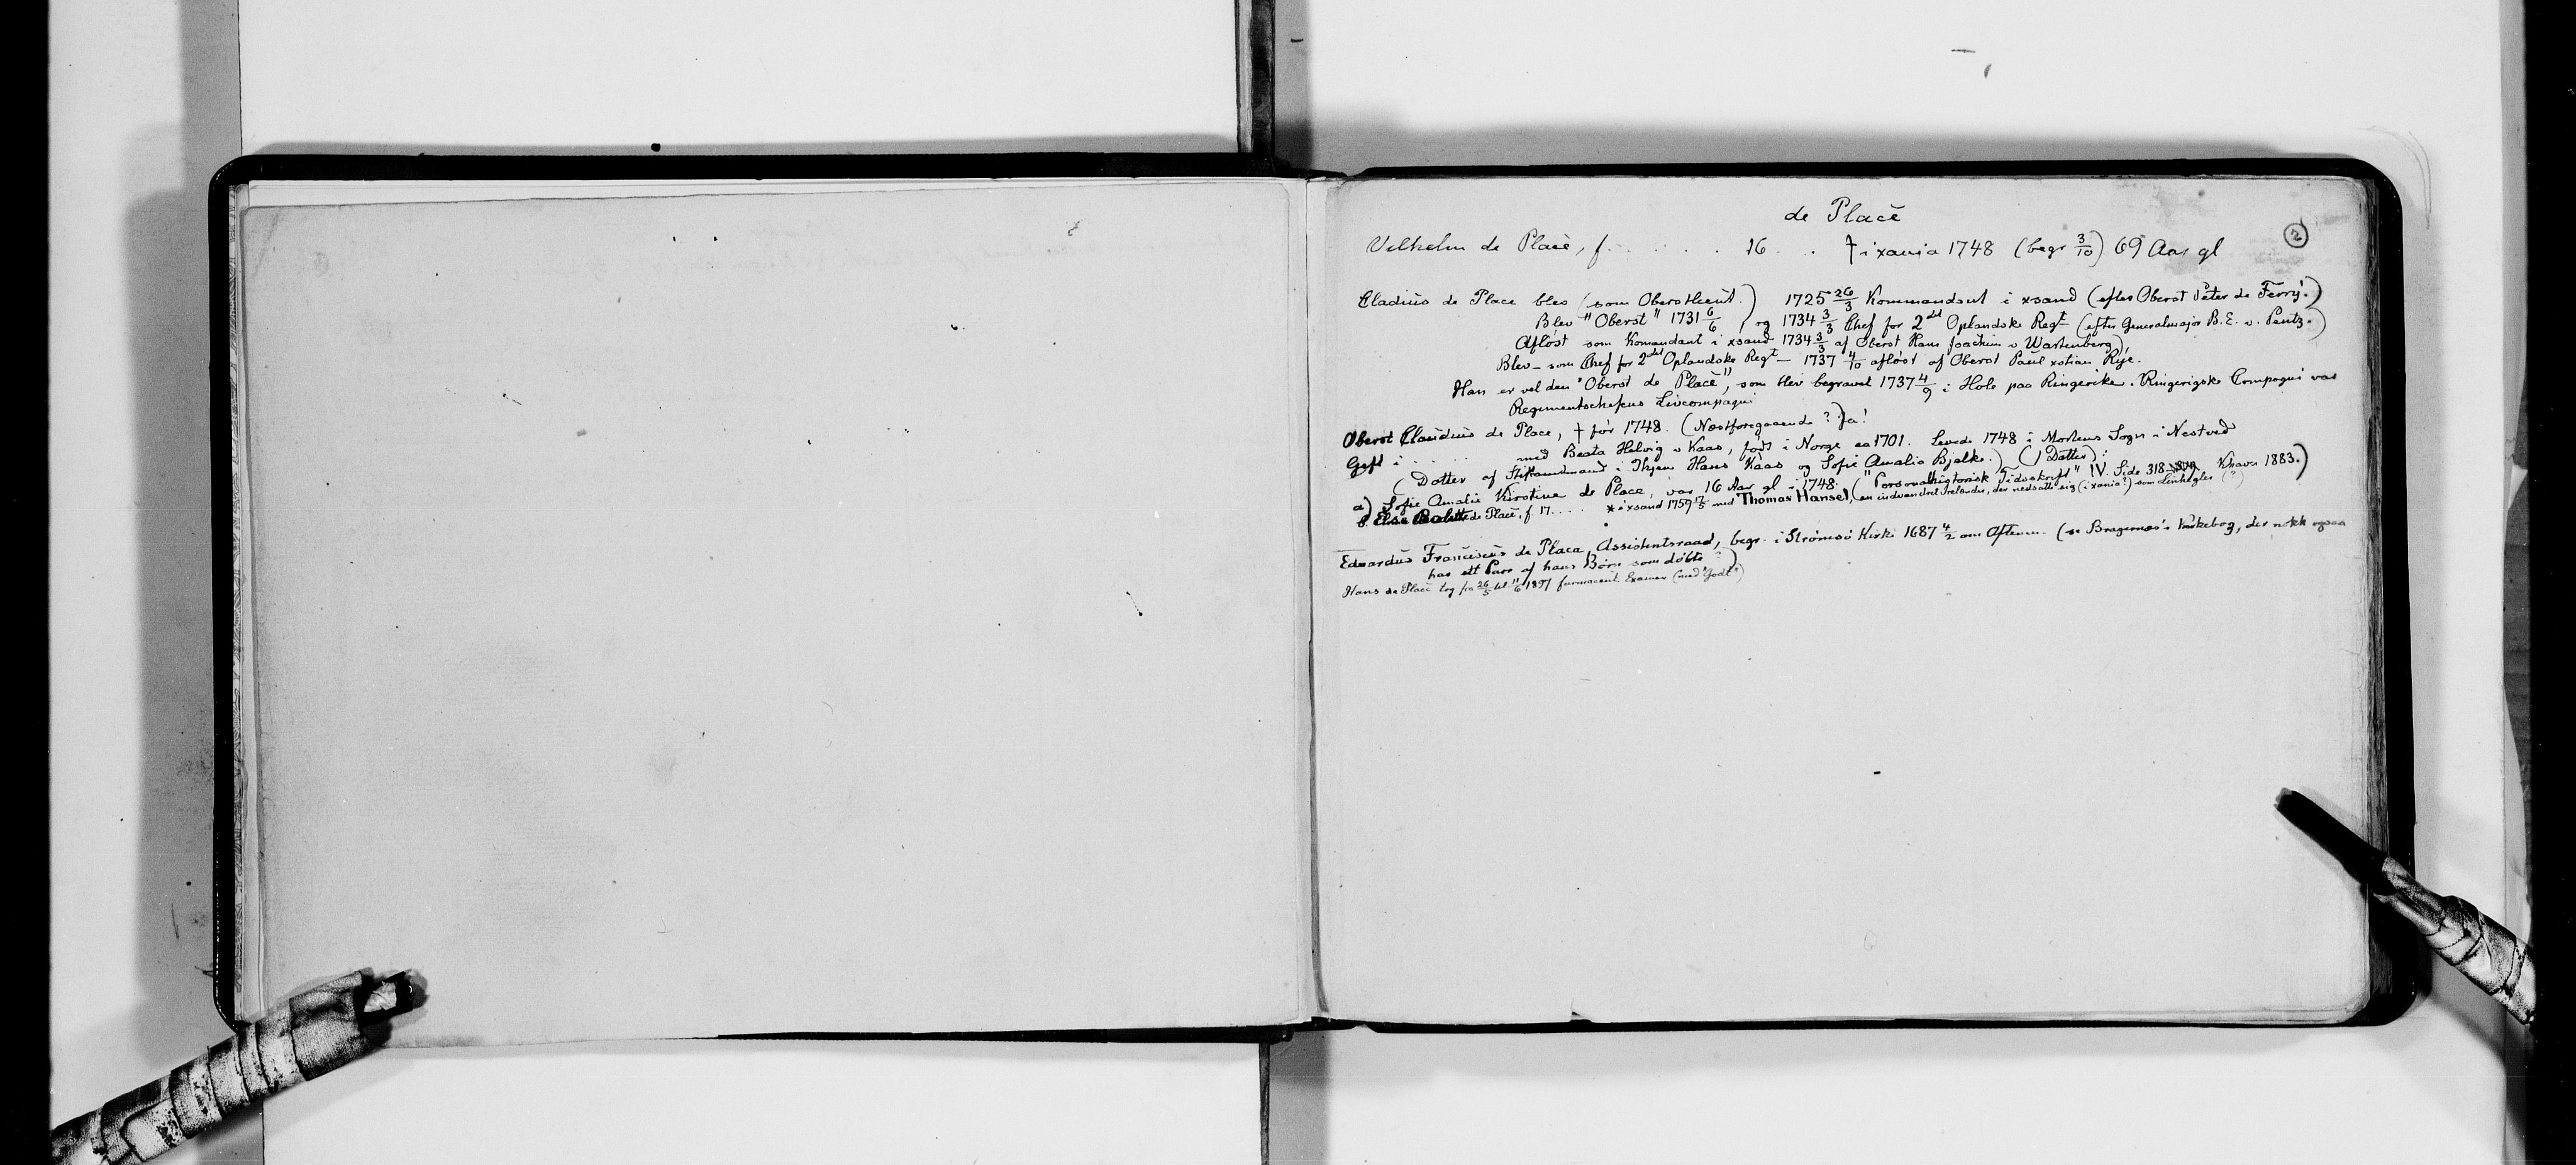 de Place
②
Vilhelm de Place, f. . . . . . 16 . . † i xania 1748 (begr 3/10) 69 Aar gl
Cladius de Place blev (som Oberstlieut.) 1725 26/3 Kommandant i xsand (efter Oberst Peter de Ferry.)
Blev "Oberst" 1731 6/6, og 1734 3/3 Chef for 2det Oplandske Regt (efter Generalmajor B. E. v. Pentz.)
Afløst som Komandant i xsand 1734 3/3 af Oberst Hans Joachim v Wartenberg)
Blev – som Chef for 2det Oplandske Regt – 1737 4/10 afløst af Oberst Paul xstian Rye.
Han er vel den "Oberst de Place", som blev begravet 1737 4/9 i Hole paa Ringerike. Ringerigske Compagni var
Regimentschefens Livcompagni
Oberst Claudius de Place, † før 1748. (Næstforegaaende ? Ja!
Gift i . . . . . med Beata Helvig v Kaas, født i Norge ca 1701. Levede 1748 i Mortens Sogn i Nestved
(Datter af Stiftamtmand i Thjem Hans Kaas og Sofie Amalie Bjelke.) (1 Datter):
a) Sofie Amalie Kirstine de Place, var 16 Aar gl i 1748. ("Personalhistorisk Tidsskrift" IV. Side 318 Khavn 1883.)
b. Else de Place, f. 17 . . . . * i xsand 1759 17/5 med Thomas Hansel, en indvandret Irelander, der nedsatte sig (i xania?) som (?)
Edvardus Franciscus de Placa, Assistentsraad, begr. i Strømsø Kirke 1687 4/2 om Aftenen. (se Bragernæs's Kirkebog, der nokk ogsaa
har ett Pare af hans Børn som døbte ?)
Hans de Place tog fra 26/5 til 11/6 1891 farmaceut. Examen (med "Godt")